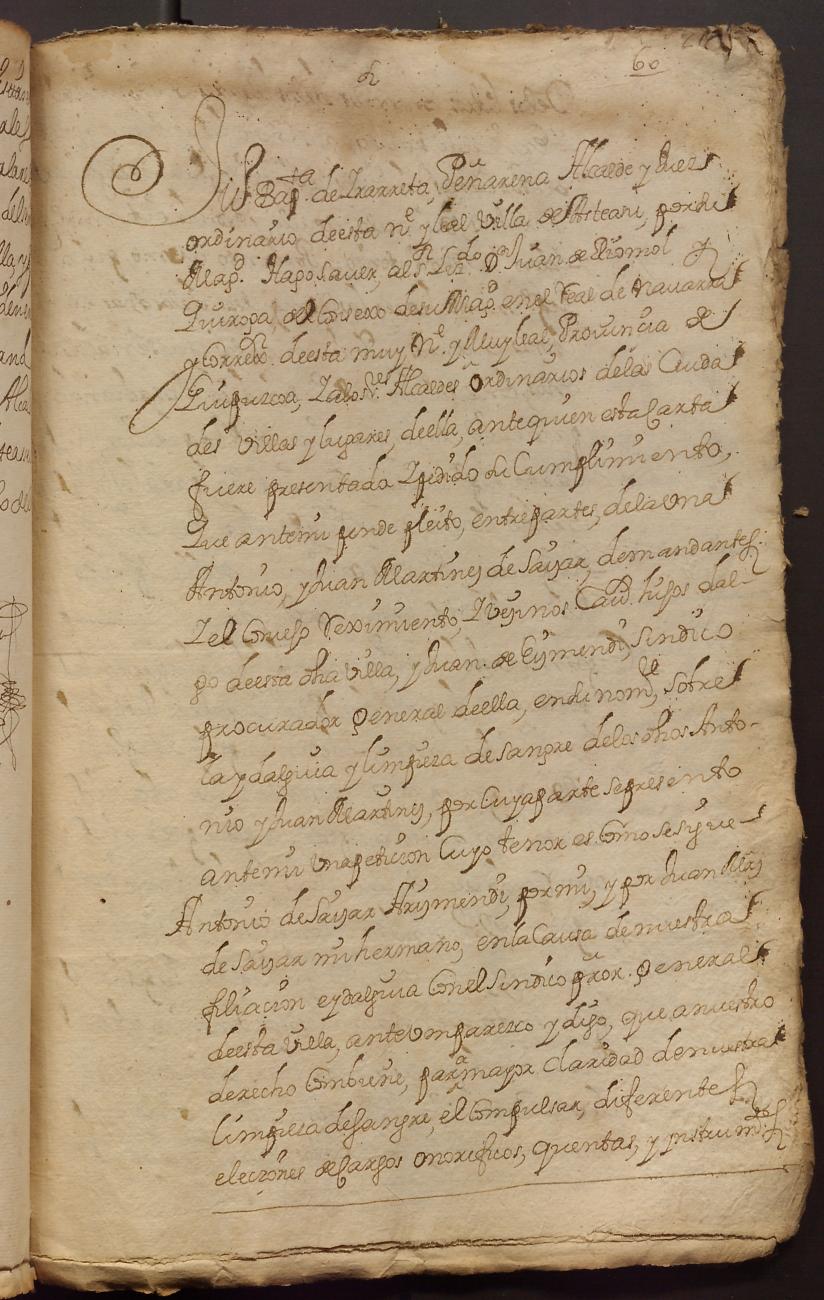 60
Ju Bapta de Yrarreta, Peñarena Alcalde y Juez
ordinario de esta n.e y leal Villa de Asteasu, por su
Magd. Hago saver, al s.r Lizdo Dn Juan de Riomol
Quiroga del Consexo de su Magd. en el Real de Navarra
y Correxor. de esta muy N.e y Muy leal, Provincia de
Guipuzcoa, Y alos s.res Alcaldes ordinarios de las Ciuda
des Villas y lugares, de ella, ante quien esta Carta
fuere presentada Y pedido su Cumplimiento,
Que ante mi pende pleito, entre partes, de la una
Antonio, y Juan Martines de Sayar, demandantes
Y el Conçejo Reximiento, Y Veçinos Caud. hijos dal-
go de esta dha Villa, y Juan de Eyzmendi, Sindico
procurador General de ella, en su nombre, sobre
la ydalguia y limpieza de sangre de los dhos Anto-
nio y Juan Martines, por Cuya parte se presento
ante mi una peticion Cuyo tenor es Como se sigue
Antonio de Sayar Arizmendi, por mi, y por Juan Mrz
de Sayar mi hermano, en la Causa de nuestra
filiacion e ydalguia Con el Sindico pror. General
de esta Villa, ante Vm parezco y digo, que a nuestro
derecho Combiene, para mayor Claridad de nuestra
limpieza de sangre, el Compulsar, diferentes
elecçiones de Cargos onorificos, quentas, y ynstrumtos